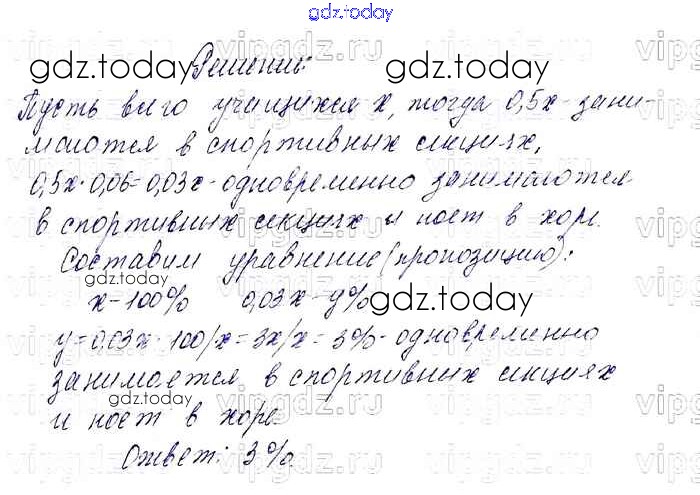 gdz.today
Решение:
gdz.today
gdz.today
Пусть всего учащихся x, тогда 0,5x - зани-
маются в спортивных секциях,
0,5x·0,06=0,03x - одновременно занимаются
в спортивных секциях и поёт в хоре.
Составим уравнение (пропозицию):
x-100% 0,03x-y%
gdz.today
gdz.today
y=0,03x·100/x=3x/x=3% - одновременно
занимается в спортивных секциях
и поёт в хоре.
Ответ: 3%
gdz.today
vipgdz.ru